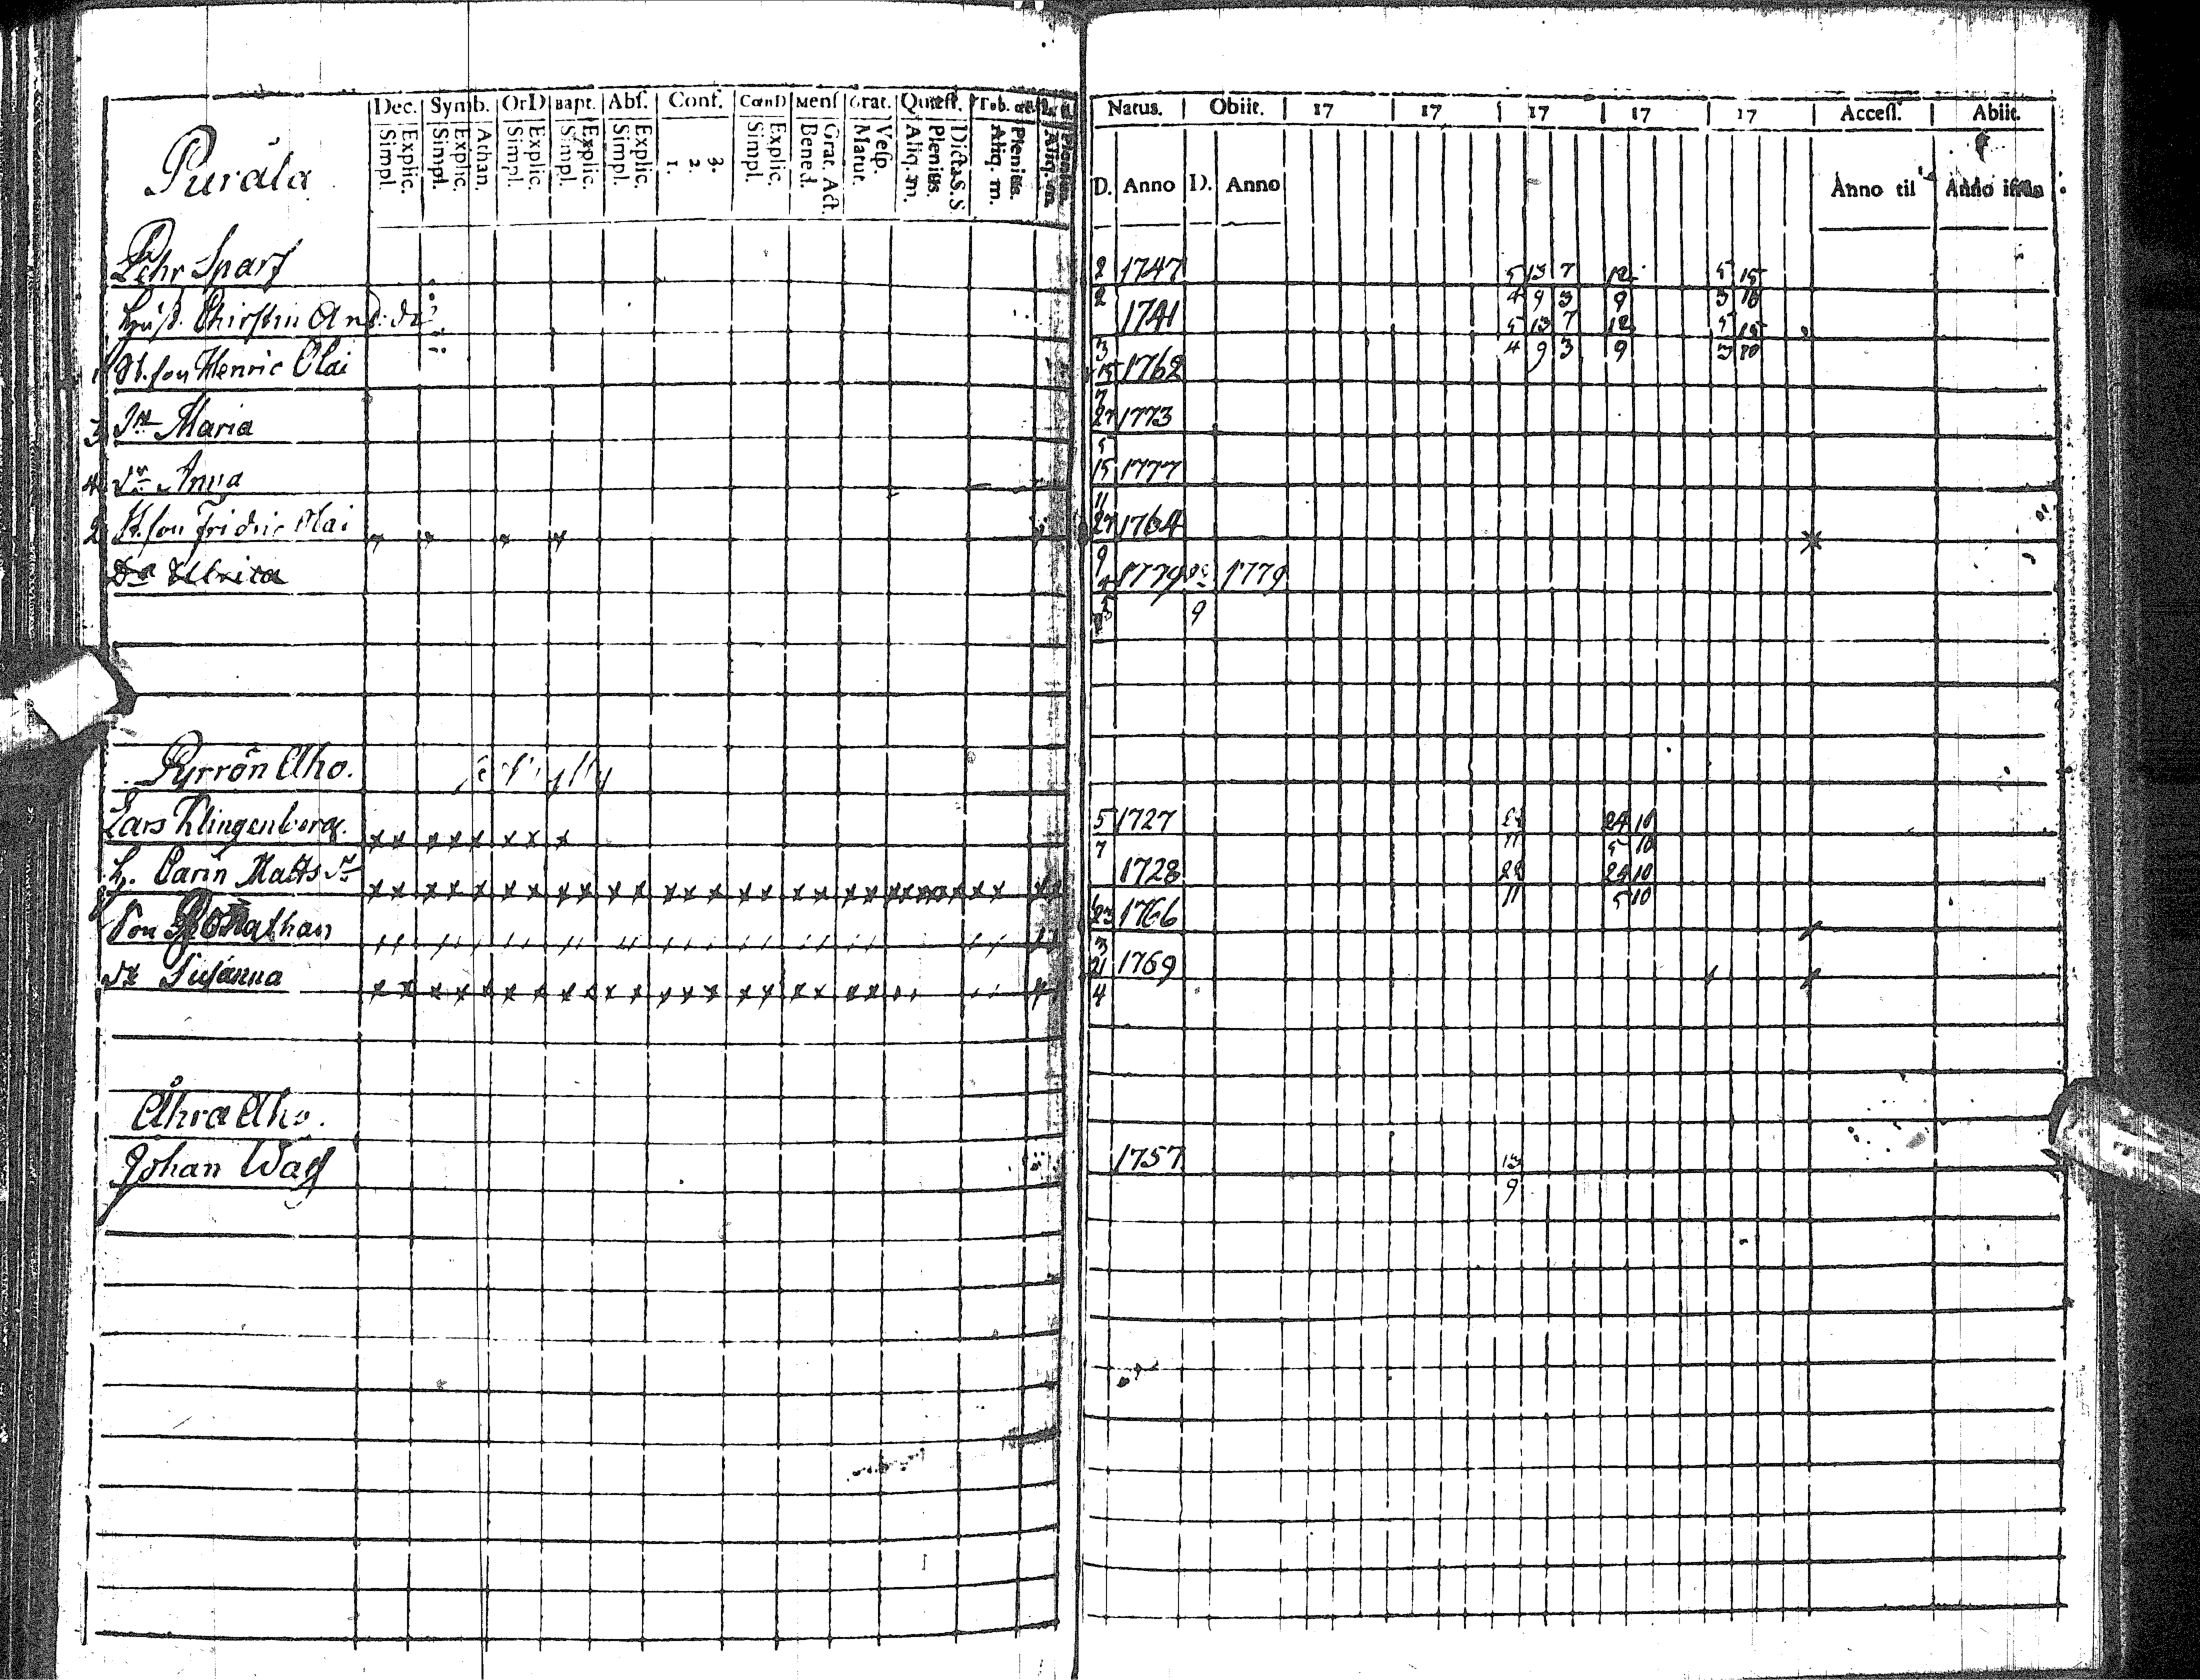 Dec. Symb. OrD Bapt. Abſ. Conf. CœnD Menſ Grat. Quæſt. Tob.
Simpl. Explic. Simpl. Explic. Athan. Simpl. Explic. Simpl. Explic. Simpl. Explic. 1. 2. 3. Simpl. Explic. Bened. Grat. Act. Matut. Veſp. Aliq. m. Plenius. Dicta S. S Aliq. m. Plenius. Aliq. m. Plenius.
Natus. Obiit. 17 17 17 17 17 Acceſſ. Abiit.
D. Anno D. Anno Anno til Anno
Puråla
Pehr Sparf 2 1747 5 13 7 12 5 15
2 4 9 3 9 3 16
Hust. Chirstin And: dr 1741 5 13 7 12 5 15
3 4 9 3 9 3
1 St. son Henric Olai 15 1762
7
3 Dr Maria 27 1773
5
4 Dr Anna 15 1777
11
2 St. son Fridric Olai 27 1764
9
Dr Ulrica 1779 1779
9
Pyrrön Aho.
Lars Klingenberg. 5 1727 24 10
7 11 5 10
H. Carin Matts dr 1728 22 24 10
11 5 10
Son Jonathan 23 1766
3
dr Susanna 21 1769
4
Åhra Aho.
Johan Wass 1757 13
9